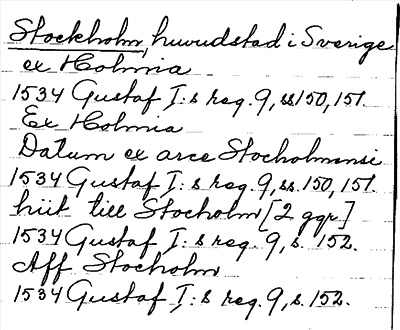 Stockholm, huvudstad i Sverige
ex Holmia
1534 Gustaf I:s reg. 9, ss 150, 151.
Ex Holmia
Datum ex arce Stocholmensi
1534 Gustaf I:s reg. 9, ss. 150, 151.
hiit till Stocholm [2 ggr]
1534 Gustaf I:s reg. 9, s. 152.
Aff Stocholm
1534 Gustaf I:s reg. 9, s. 152.